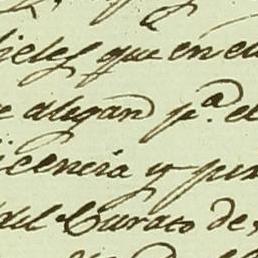 fieles que en el
e alegan p.ª el
icencia y per
del Curato de